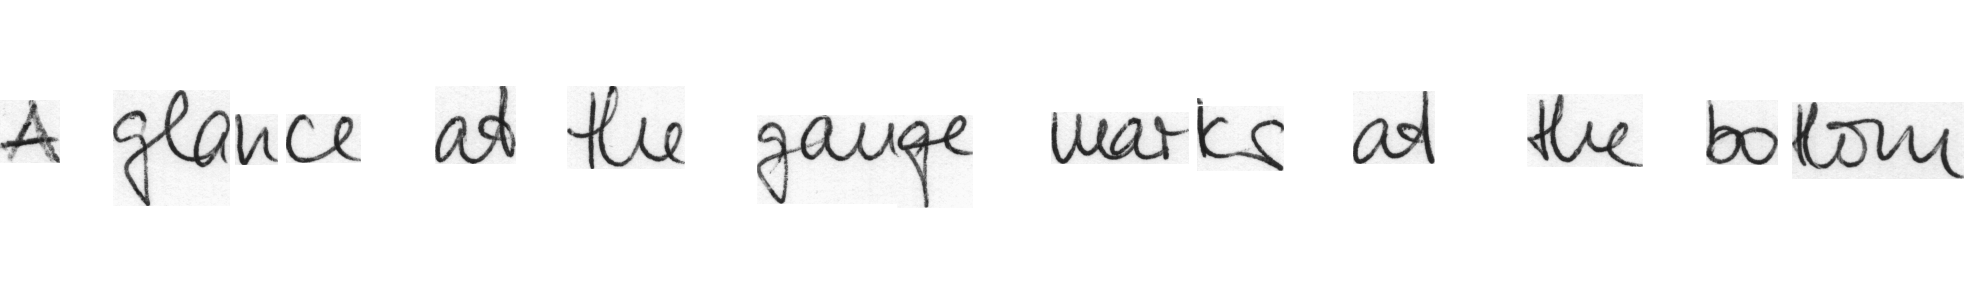 A glance at the gauge marks at the bottom